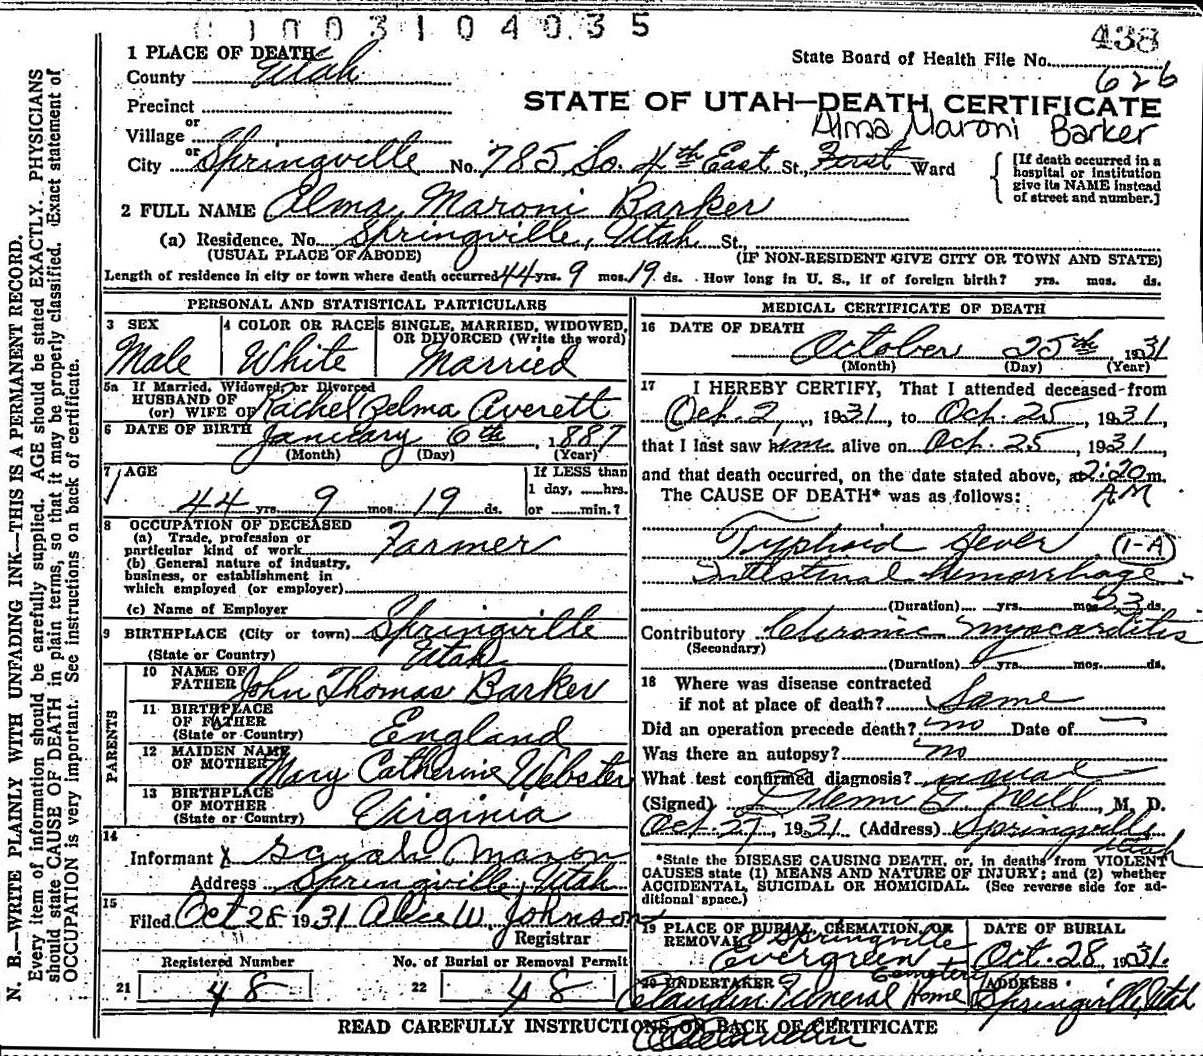 0 1 0 0 3 1 0 4 0 3 5
438
State Board of Health File No.
626
1 PLACE OF DEATH
County Utah
STATE OF UTAH—DEATH CERTIFICATE
Precinct
or
Village
Alma Maroni Barker
or
City Springville No. 785 So. 4th East St., First Ward
[If death occurred in a hospital or institution give its NAME instead of street and number.]
2 FULL NAME Alma Maroni Barker
(a) Residence. No. Springville, Utah St.,
(USUAL PLACE OF ABODE) (IF NON-RESIDENT GIVE CITY OR TOWN AND STATE)
Length of residence in city or town where death occurred 44 yrs. 9 mos. 19 ds. How long in U. S., if of foreign birth? yrs. mos. ds.
PERSONAL AND STATISTICAL PARTICULARS
3 SEX 4 COLOR OR RACE 5 SINGLE, MARRIED, WIDOWED,
OR DIVORCED (Write the word)
Male White Married
5a If Married, Widowed, or Divorced
HUSBAND OF
(or) WIFE OF Rachel Zelma Averett
6 DATE OF BIRTH January 6th, 1887
(Month) (Day) (Year)
7 AGE If LESS than
1 day, ......hrs.
44 yrs. 9 mos. 19 ds. or ......min.?
8 OCCUPATION OF DECEASED
(a) Trade, profession or
particular kind of work Farmer
(b) General nature of industry,
business, or establishment in
which employed (or employer)
(c) Name of Employer
9 BIRTHPLACE (City or town) Springville
(State or Country) Utah
PARENTS
10 NAME OF
FATHER John Thomas Barker
11 BIRTHPLACE
OF FATHER
(State or Country) England
12 MAIDEN NAME
OF MOTHER Mary Catherine Webster
13 BIRTHPLACE
OF MOTHER
(State or Country) Virginia
14
Informant X Sarah Mason
Address Springville, Utah
15
Filed Oct 28 1931 Alice W. Johnson
Registrar
Registered Number No. of Burial or Removal Permit
21 48 22 48
MEDICAL CERTIFICATE OF DEATH
16 DATE OF DEATH
October 25th, 1931
(Month) (Day) (Year)
17 I HEREBY CERTIFY, That I attended deceased from
Oct. 2, 1931, to Oct. 25, 1931,
that I last saw him alive on Oct. 25, 1931,
and that death occurred, on the date stated above, at 2:20 m.
The CAUSE OF DEATH* was as follows: A.M
Typhoid fever (1-A)
Intestinal hemorrhage
(Duration) yrs. mos. 23 ds.
Contributory Chronic myocarditis
(Secondary)
(Duration) yrs. mos. ds.
18 Where was disease contracted
if not at place of death? Same
Did an operation precede death? no Date of
Was there an autopsy? no
What test confirmed diagnosis? usual
(Signed) M. D.
Oct. 27, 1931 (Address) Springville
Utah
*State the DISEASE CAUSING DEATH, or, in deaths from VIOLENT
CAUSES state (1) MEANS AND NATURE OF INJURY; and (2) whether
ACCIDENTAL, SUICIDAL OR HOMICIDAL. (See reverse side for ad-
ditional space.)
19 PLACE OF BURIAL, CREMATION, OR DATE OF BURIAL
REMOVAL Springville
Evergreen Cemetery Oct. 28, 1931.
20 UNDERTAKER ADDRESS
Claudin Funeral Home Springville, Utah
READ CAREFULLY INSTRUCTIONS ON BACK OF CERTIFICATE
N. B.—WRITE PLAINLY WITH UNFADING INK—THIS IS A PERMANENT RECORD.
Every item of information should be carefully supplied. AGE should be stated EXACTLY. PHYSICIANS
should state CAUSE OF DEATH in plain terms, so that it may be properly classified. Exact statement of
OCCUPATION is very important. See instructions on back of certificate.